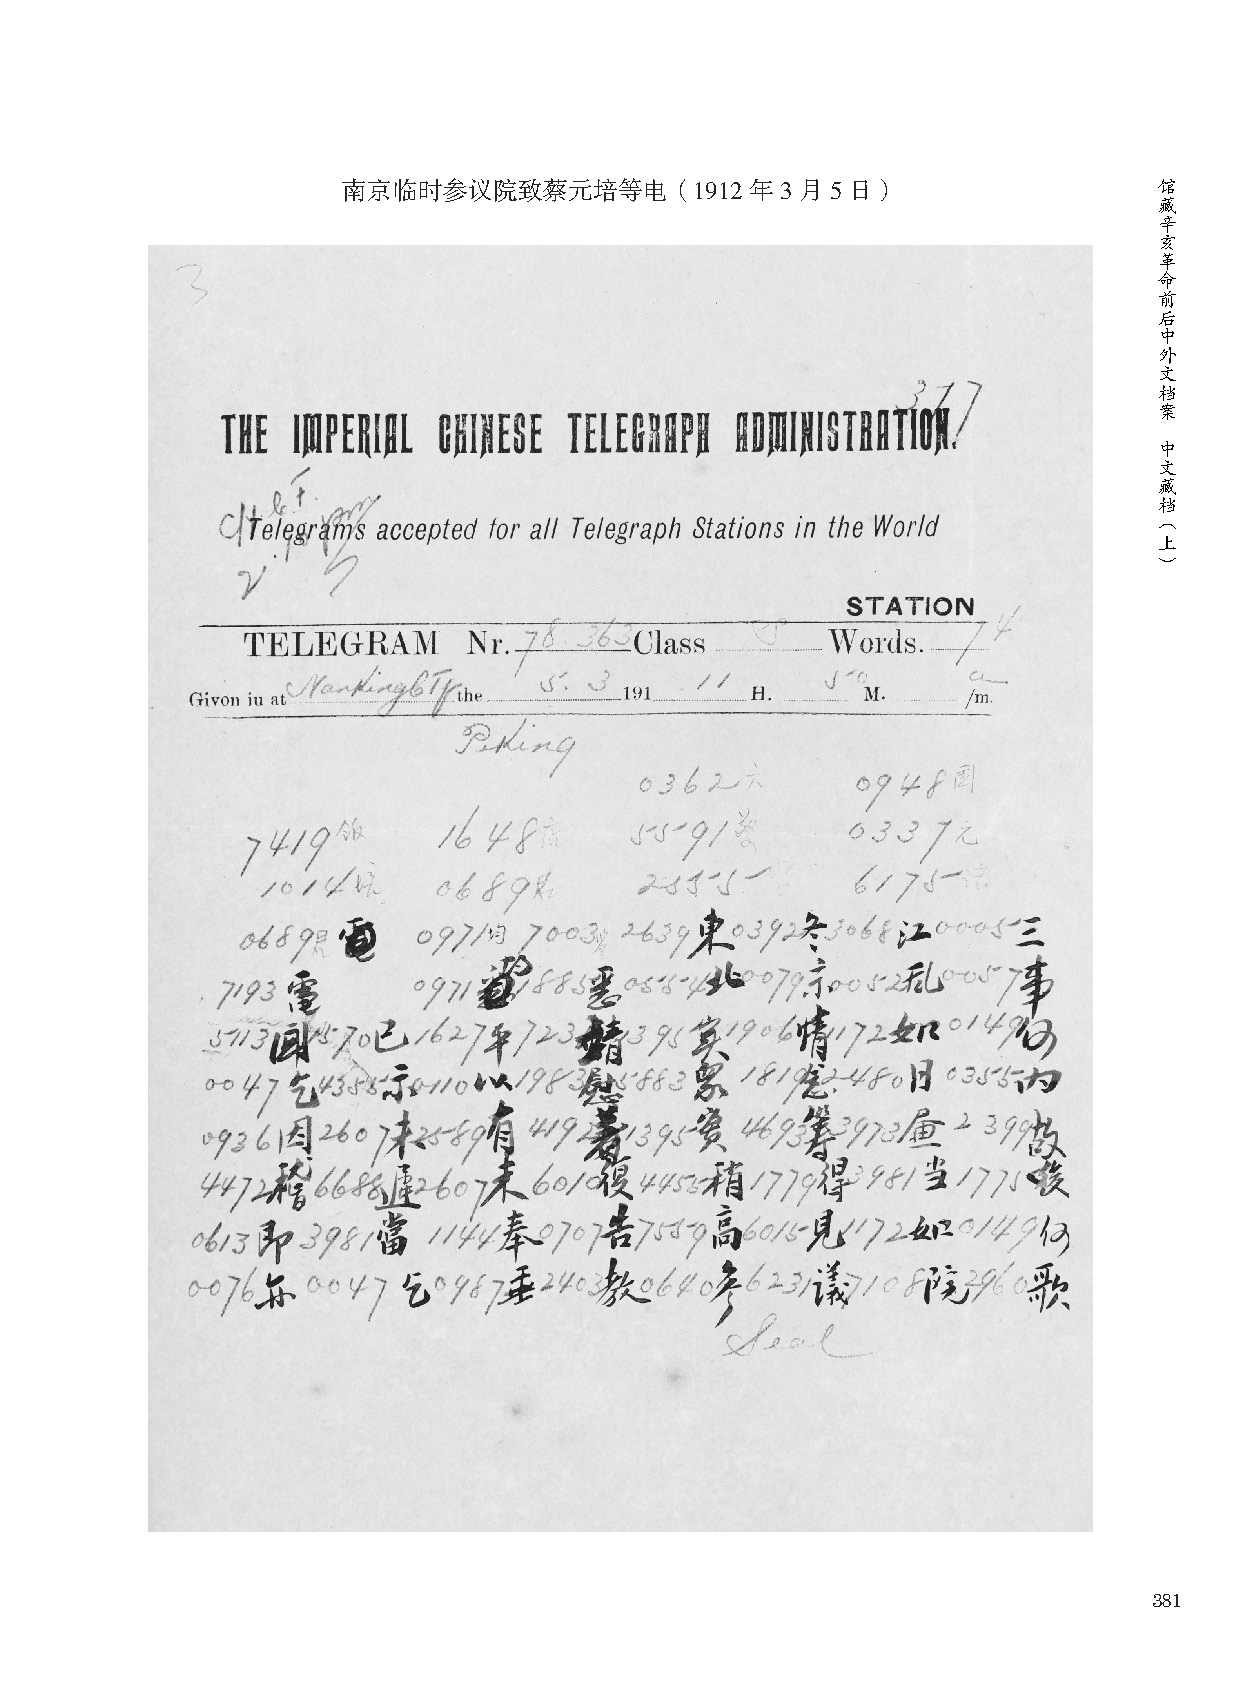 南京临时参议院致蔡元培等电（1912年3月5日）
馆藏辛亥革命前后中外文档案 中文藏档（上）
3
377
THE IMPERIAL CHINESE TELEGRAPH ADMINISTRATION.
Telegrams accepted for all Telegraph Stations in the World
STATION
TELEGRAM Nr. 78 363 Class S Words. 74
Givon iu at Nanking the 5. 3 191 11 H. 50 M. a/m.
Peking
0362六 0948國
7419飯 1648店 5591蔡 0337元
1014培 0689 2555 6175
0689 電 0971均 7003 2639東 0392冬 3068江 0005三
7193電 0971均 1885悉 0554北 0079京 0052乱 0057事
5113 1570已 1627平 7231 1395寔 1906情 1172如 0149何
0047乞 4355示 0110以 1983慰 5883眾 1819 2480日 0355内
0936因 2607未 2589有 4192著 1395實 4693籌 3973 2399故
4472稽 6688遲 2607未 6010復 4455稍 1779得 3981当 1775
0613即 3981當 1144奉 0707告 7559高 6015見 1172如 0149何
0076亦 0047乞 0987垂 2403教 0640參 6231議 7108院 2960歌
Seal
381